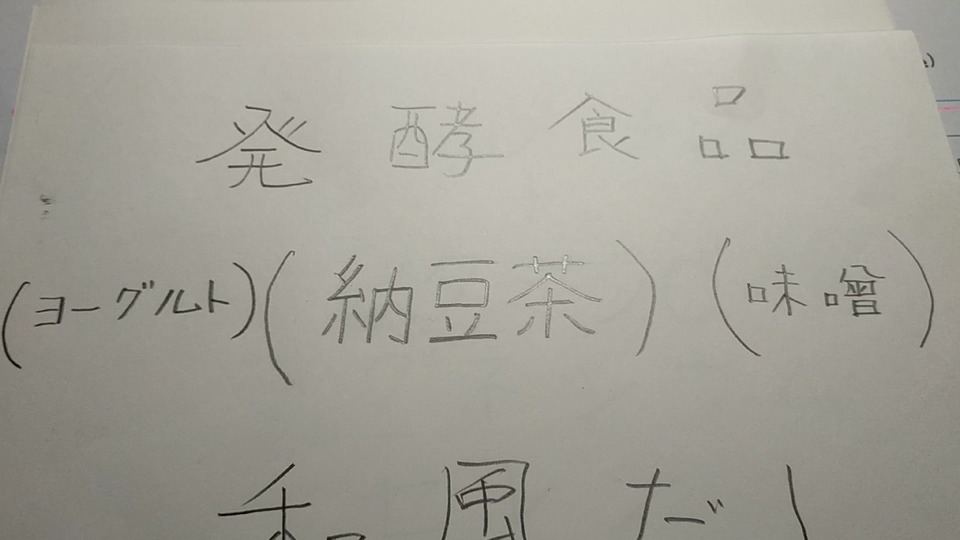 発酵食品
(ヨーグルト)(納豆茶)(味噌)
和風だし